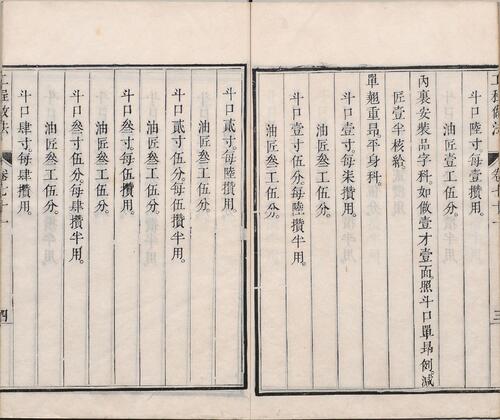 工程做法
卷七十一
三
斗口陸寸。每壹攢用。
油匠壹工伍分。
內裏安裝品字科如做壹才壹面照斗口單昻例。減
匠壹半核給。
單翹重昻。平身科。
斗口壹寸。每柒攢用。
油匠叁工伍分。
斗口壹寸伍分。每陸攢半用。
油匠叁工伍分。
斗口貳寸。每陸攢用。
油匠叁工伍分。
斗口貳寸伍分。每伍攢半用。
油匠叁工伍分。
斗口叁寸。每伍攢用。
油匠叁工伍分。
斗口叁寸伍分。每肆攢半用。
油匠叁工伍分。
斗口肆寸。每肆攢用。
工程做法
卷七十一
四